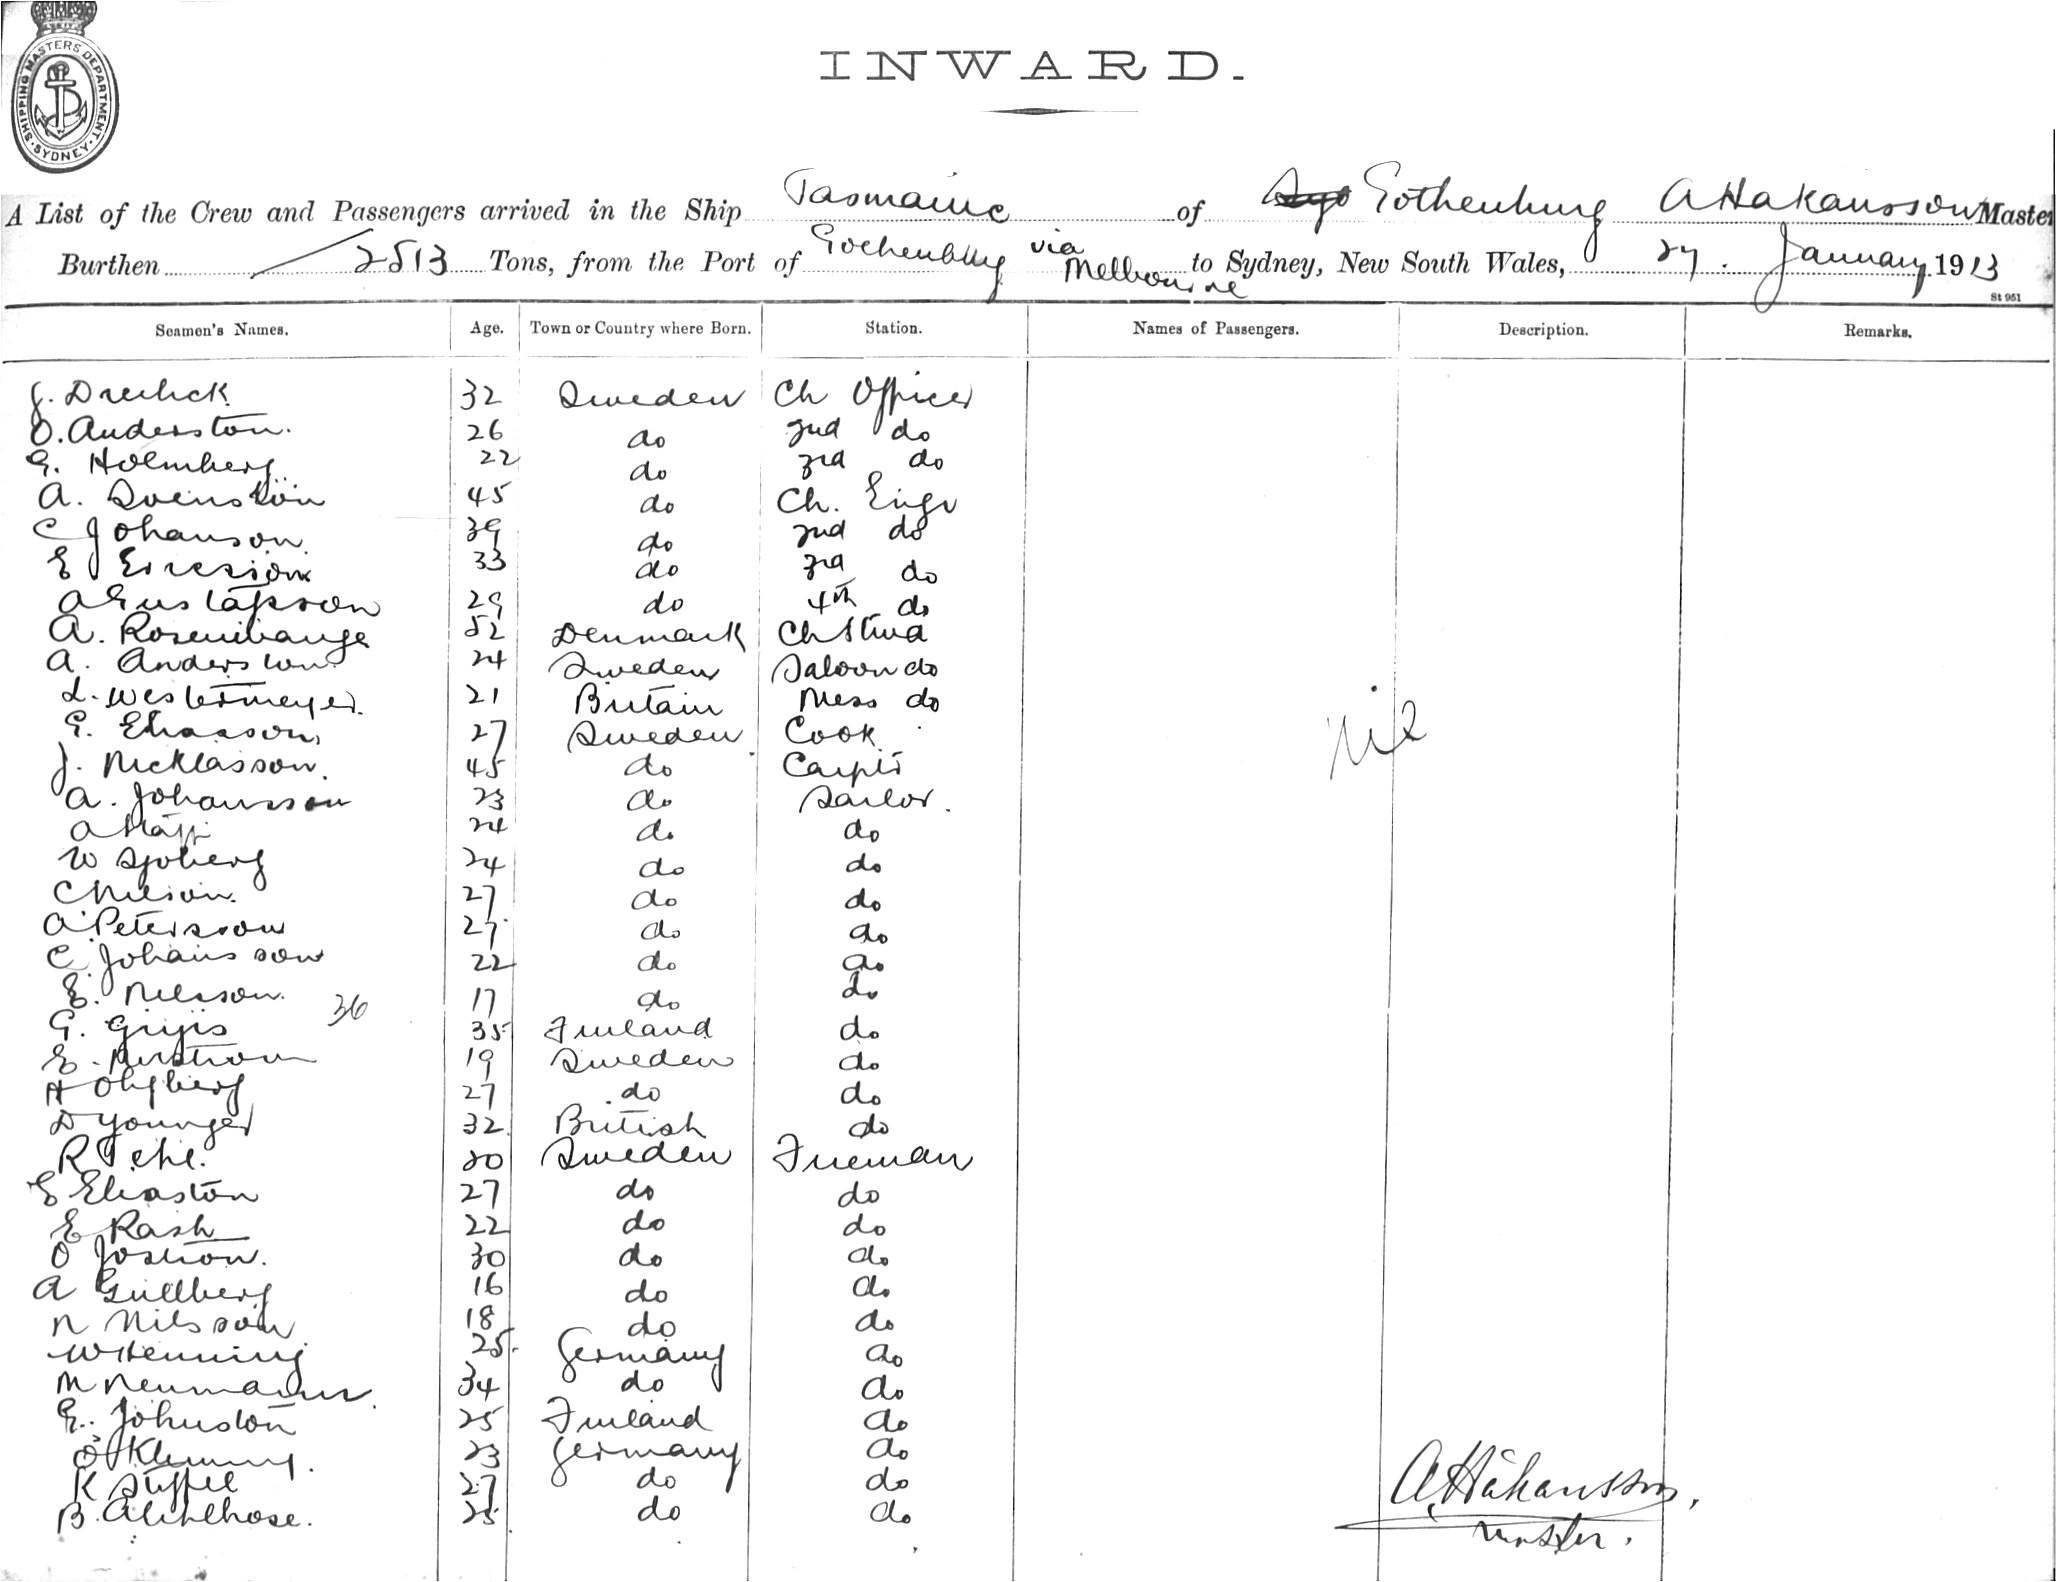 SHIPPING MASTERS DEPARTMENT. SYDNEY
INWARD.
A List of the Crew and Passengers arrived in the Ship Tasmanic of Gothenburg A Hakansson Master
Burthen 2513 Tons, from the Port of Gothenburg via Melbourne to Sydney, New South Wales, 27. January 1913
St 951
Seamen's Names. Age. Town or Country where Born. Station. Names of Passengers. Description. Remarks.
J. 32 Sweden Ch Officer
O. Anderston. 26 do 2nd do
G. Holmberg 22 do 3rd do
A. Svenston 45 do Ch. Engr
C Johanson. 39 do 2nd do
E Ericsson 33 do 3rd do
A Gustafson 29 do 4th do
A. 52 Denmark Ch Stwd
A. Anderston 24 Sweden Saloon do
L. Westermeyer. 21 Britain Mess do
G. Eliasson, 27 Sweden Cook
J. Nicklasson. 45 do Carptr
A. Johansson 23 do Sailor.
A 24 do do
W Sjoberg 24 do do
C Nilson. 27 do do
A Petersson 27 do do
C Johansson 22 do do
E. Nilsson. 17 do do
36
G. 35 Finland do
E. 19 Sweden do
H 27 do do
D Younger 32 British do
R 20 Sweden Fireman
E Eliaston 27 do do
E Rask 22 do do
O 30 do do
A Gullberg 16 do do
N Nilsson 18 do do
W Henning 25. Germany do
M Neumann. 34 do do
E. Johnston 25 Finland do
O Klemmy. 23 Germany do
K 27 do do
B. 25 do do
Nil
A. Håkansson,
Master.